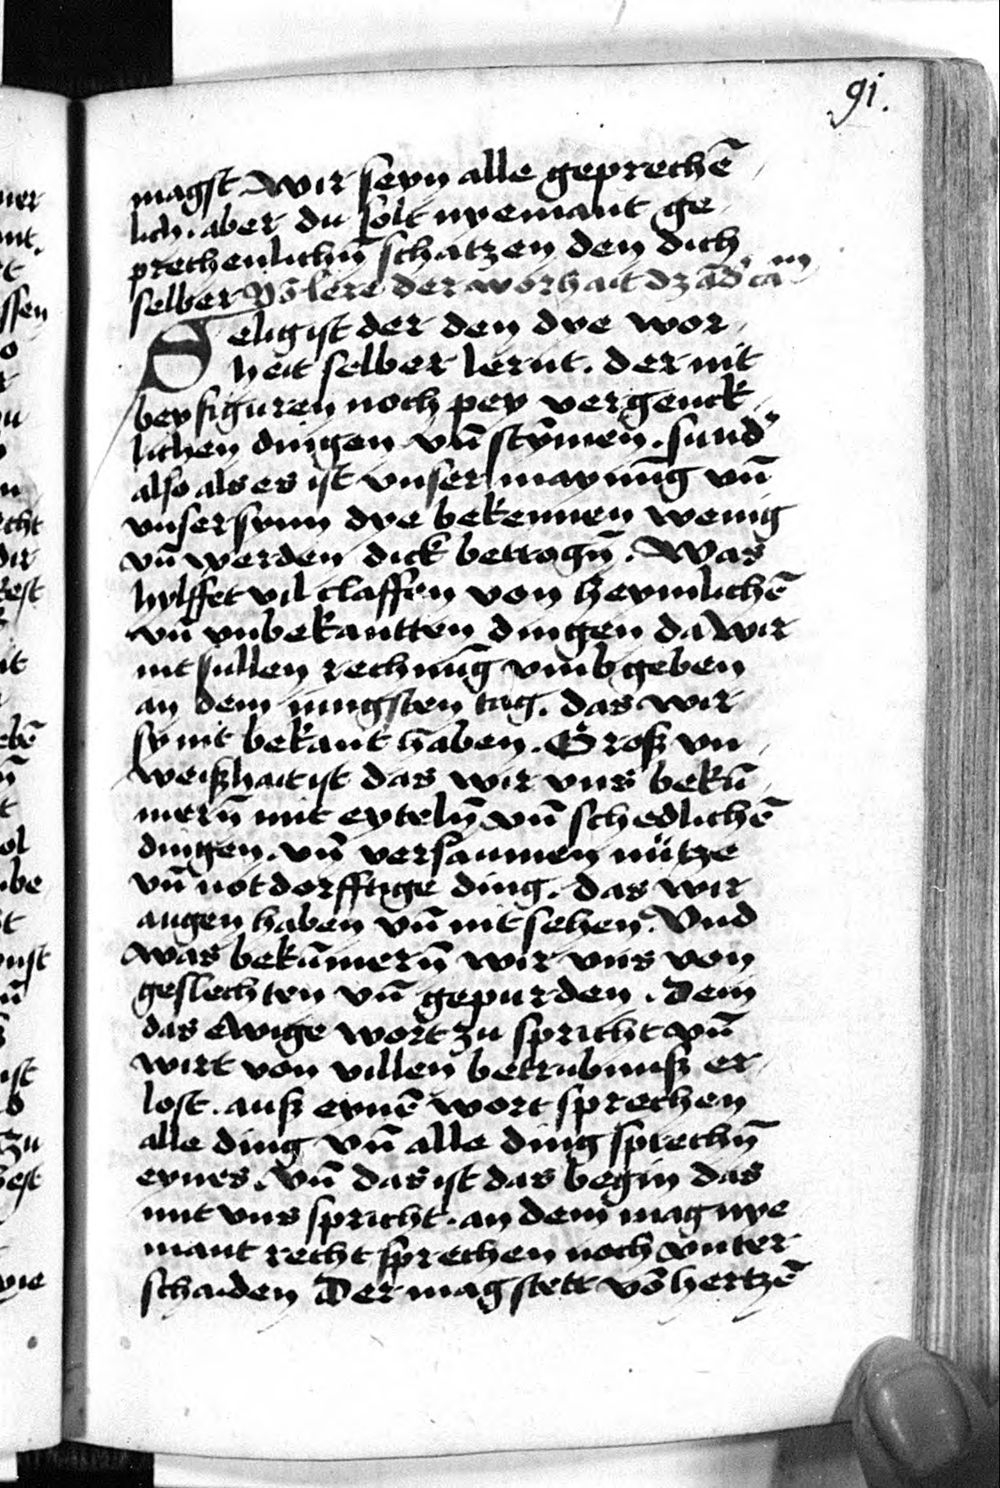 91.
magst Wir seyn alle geprechē
lich. aber du solt nyemant ge
prechenlichn̄ schatzen den dich
selber Vō lere der worhait dz ād' ca m
Selig ist der den dye wor
heit selber lernt. der nit
bey figuren noch pey vergenck
lichen dingen vn̄ stȳmen. sund'
also als es ist vnser maynūg vn̄
vnser synn dye bekennen wenig
vn̄ werden dick betrogn̄. Was
hylffet vil claffen von heymlichē
vn̄ vnbekantten dingen da wir
nit sullen rechnūg vmb geben
an dem iungsten tag. das wir
sy nit bekant haben. Groß vn
weißhait ist das wir vns bekū
mern̄ mit eyteln̄ vn̄ schedlichē
dingen. vn̄ versaumen nütze
vn̄ notdorfftige ding. das wir
augen haben vn̄ nit sehen. Vnd
was bekūmern̄ wir vns von
geslechten vn̄ gepurden. Dem
das ewige wort zu spricht vn̄
wirt von villen betrubnuß er
lost. auß eynē wort sprechen
alle ding vn̄ alle ding sprechn̄
eynes. vn̄ das ist das begin das
mit vns spricht. an dem mag nye
mant recht sprechen noch vnter
schaiden Der mag stett vō hertzē